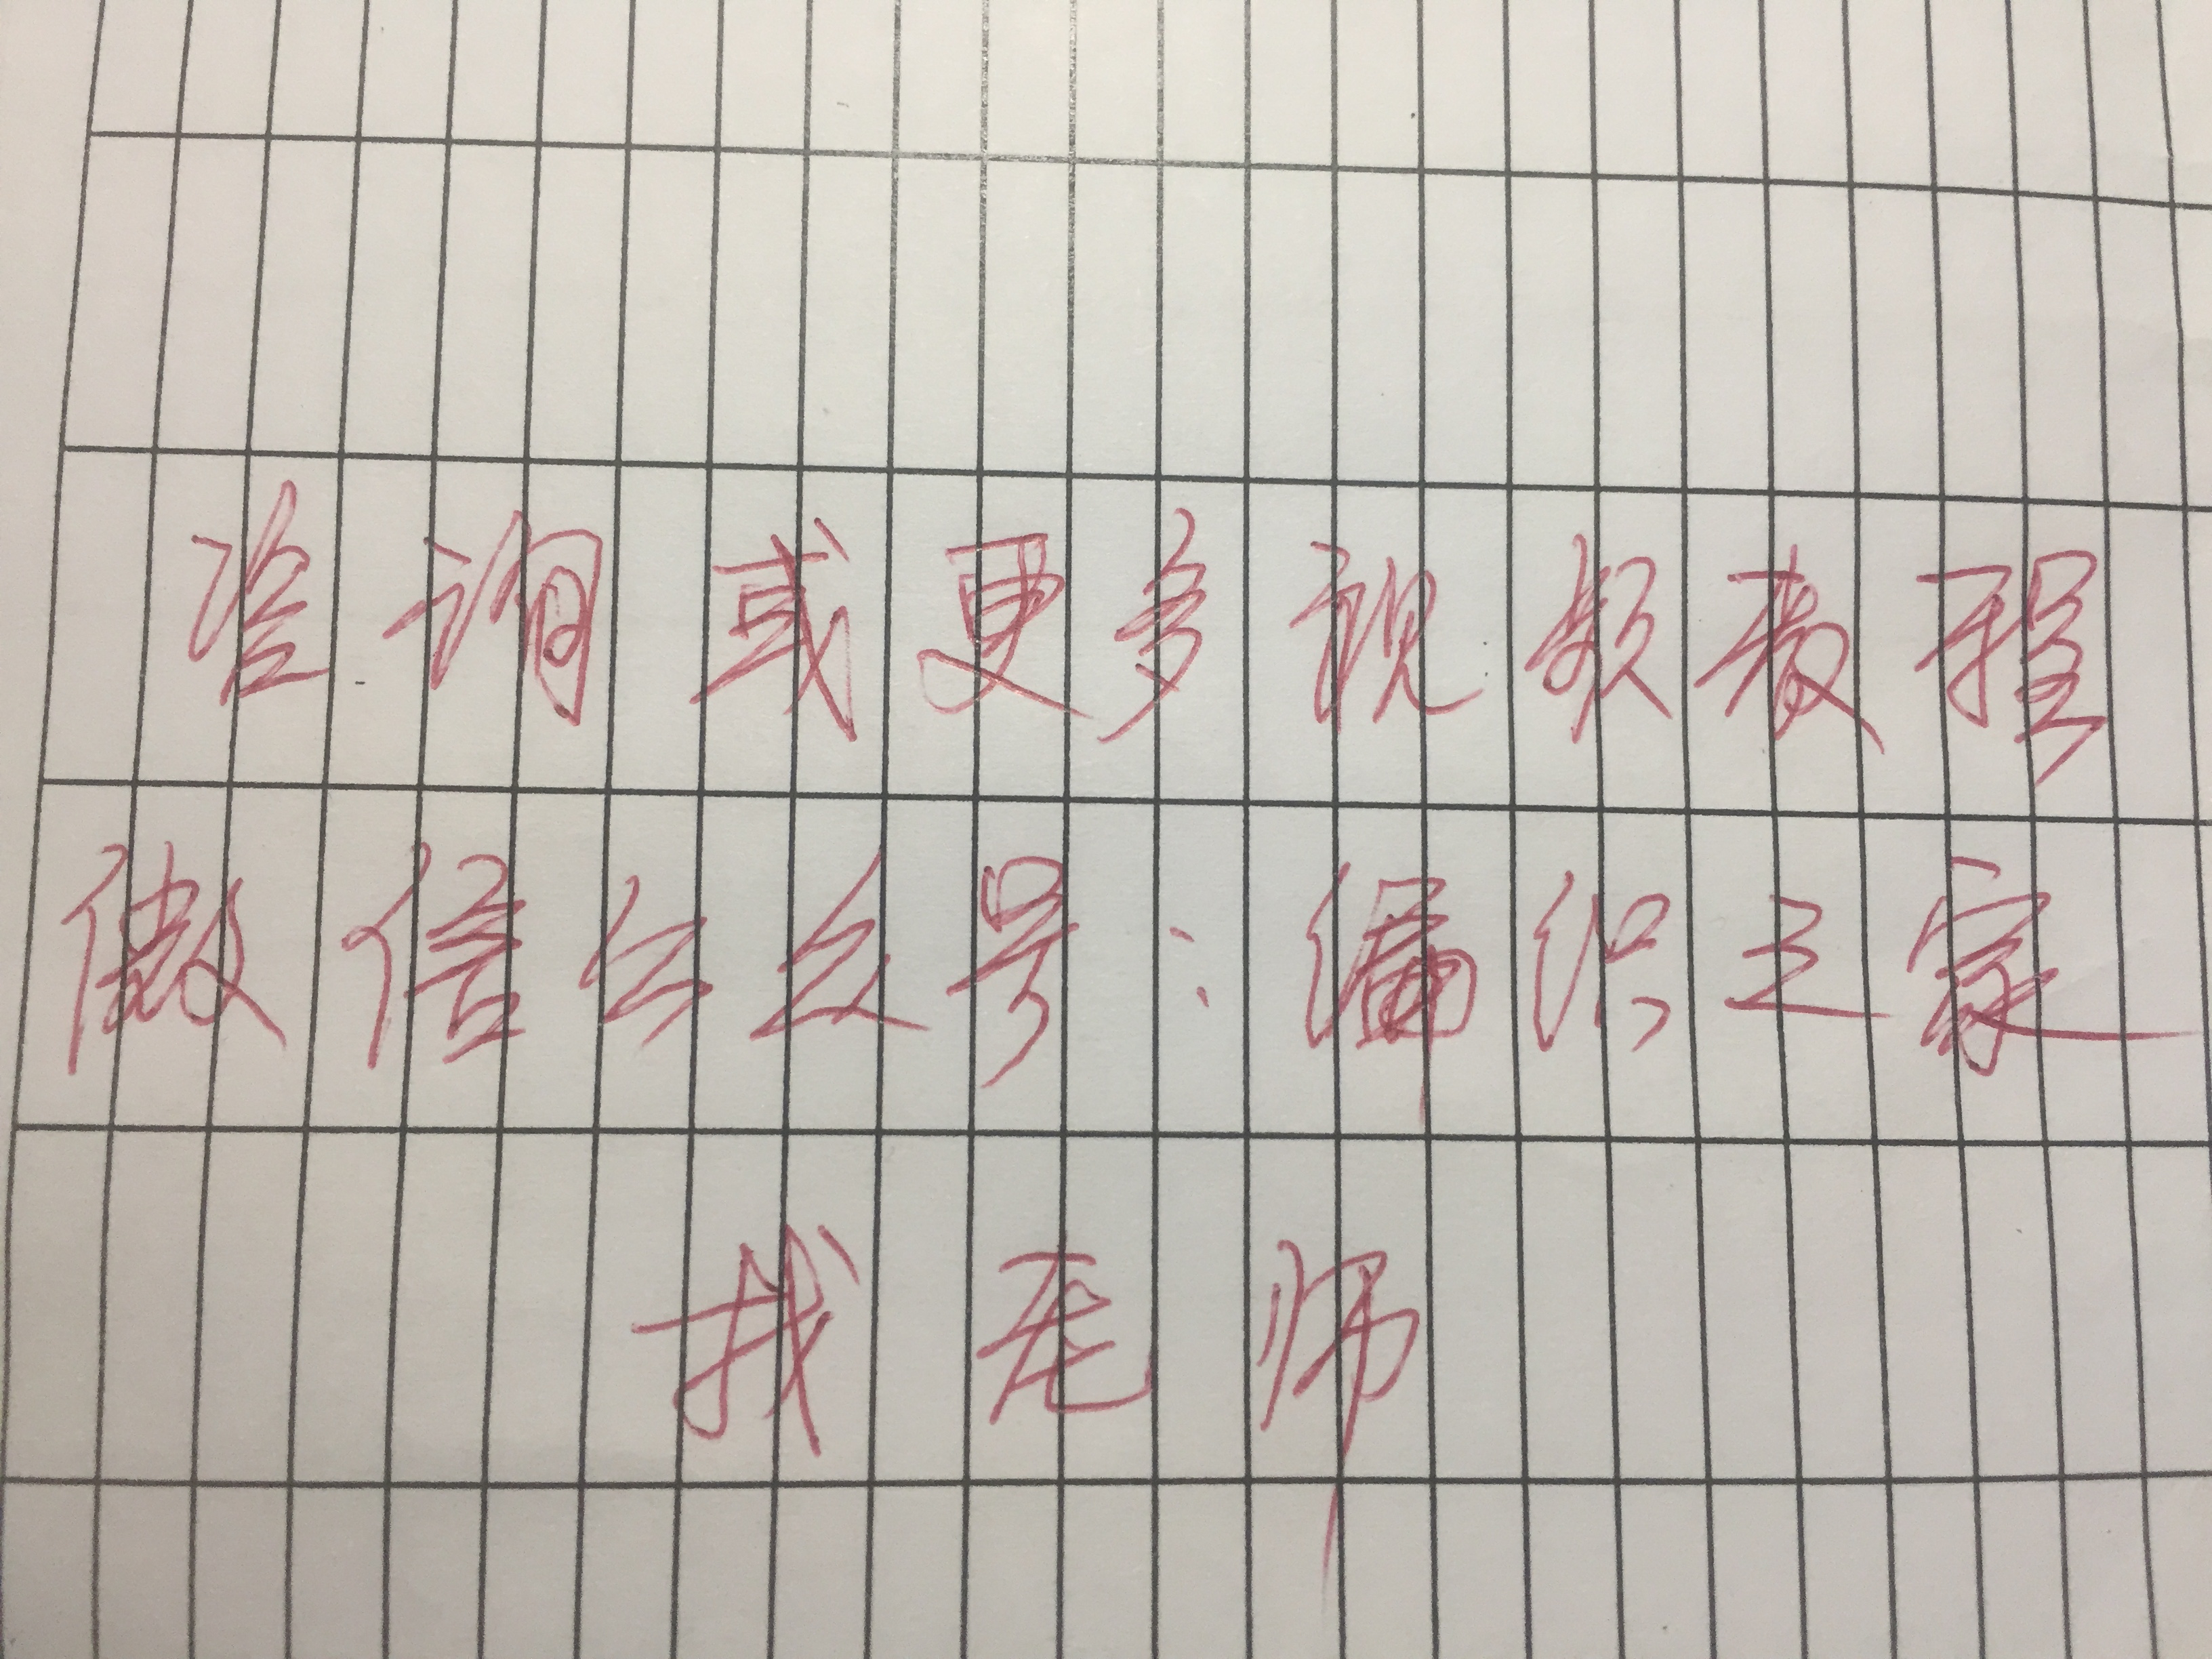 咨询或更多视频教程
微信公众号:编织之家
找毛师